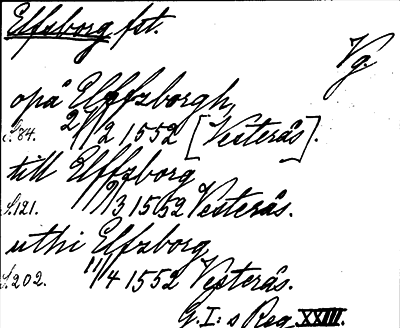 Elfzborg fst.
Vg.
opå Elffzborgh,
S. 84. 2/2 1552 [Vesterås].
till Elffzborg
S. 121. 9/3 1552 Vesterås.
uthi Elffzborg
S. 202. 11/4 1552 Vesterås.
G. I:s Reg. XXIII.